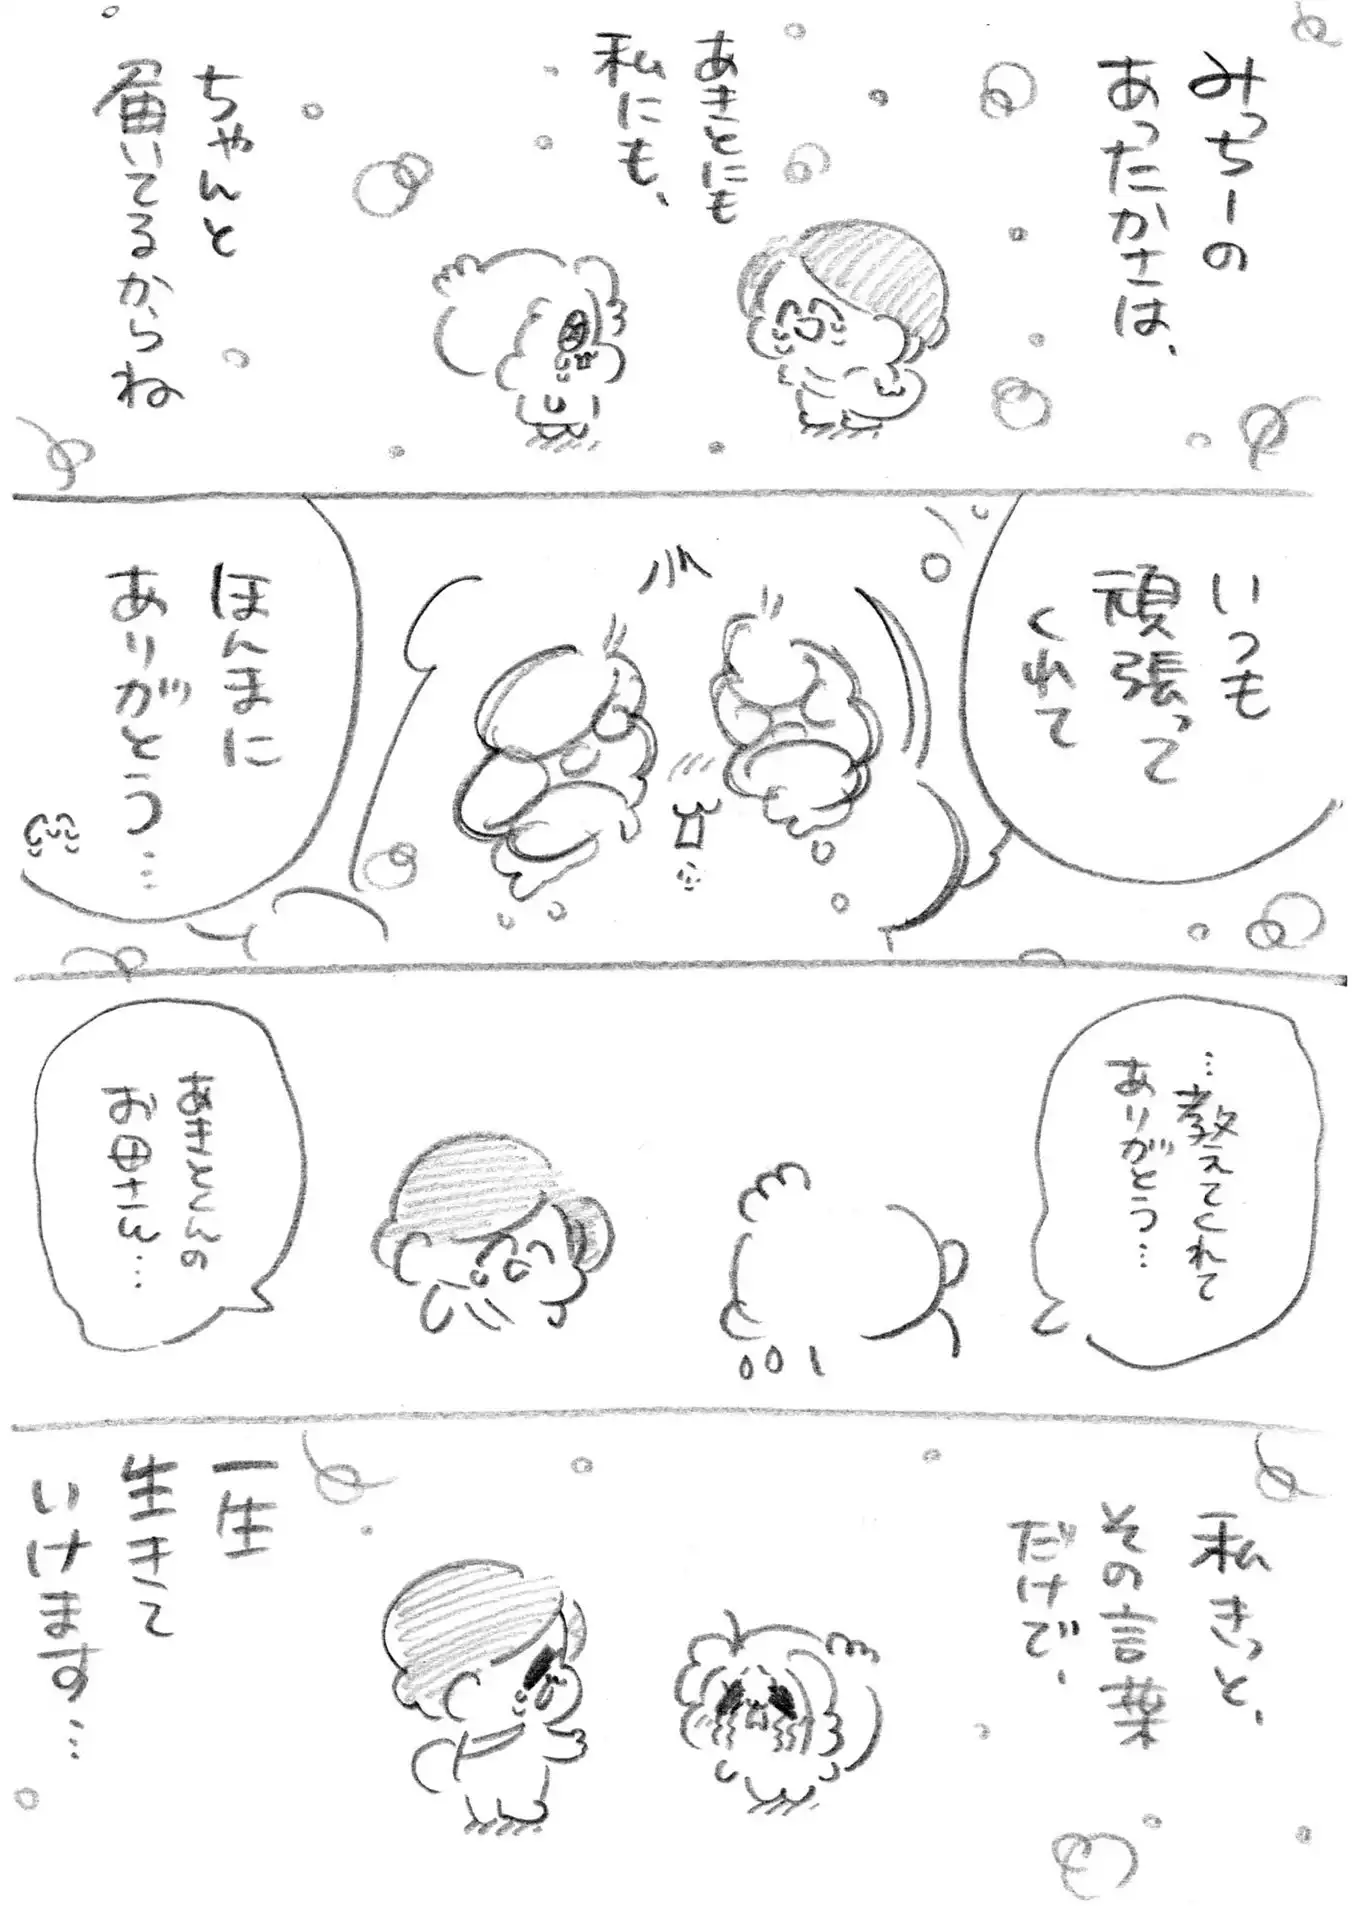 みっちーの
あったかさは、
あきとにも
私にも、
ちゃんと
届いてるからね
いつも
頑張って
くれて
ほんまに
ありがとう…
…教えてくれて
ありがとう…
あきとくんの
お母さん…
私きっと、
その言葉
だけで、
一生
生きて
いけます…